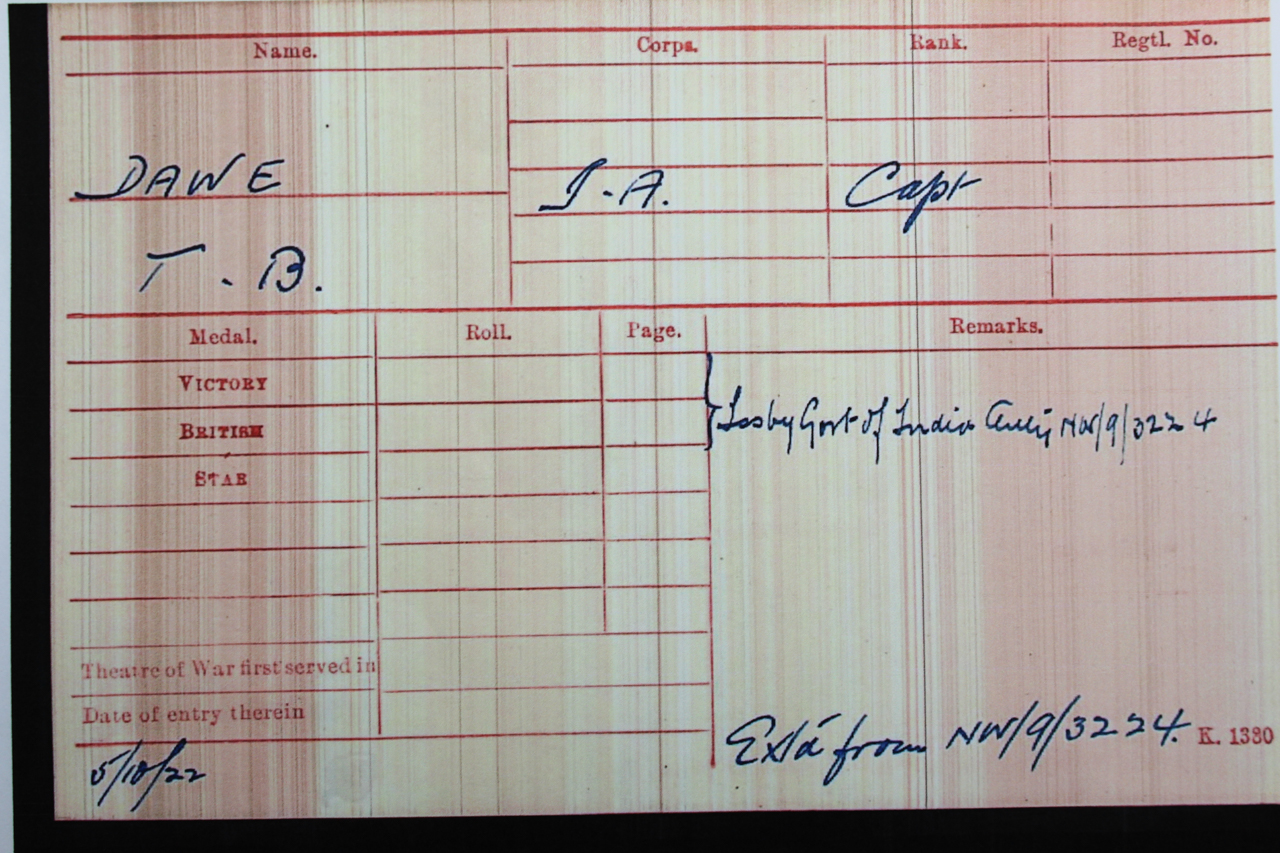 Name. Corps. Rank. Regtl. No.
DAWE I.A. Capt
T. B.
Medal. Roll. Page. Remarks.
VICTORY
BRITISH
Issby Govt of India NW/9/3224
STAR
Theatre of War first served in
Date of entry therein
Extd from NW/9/3224. K. 1380
5/10/22